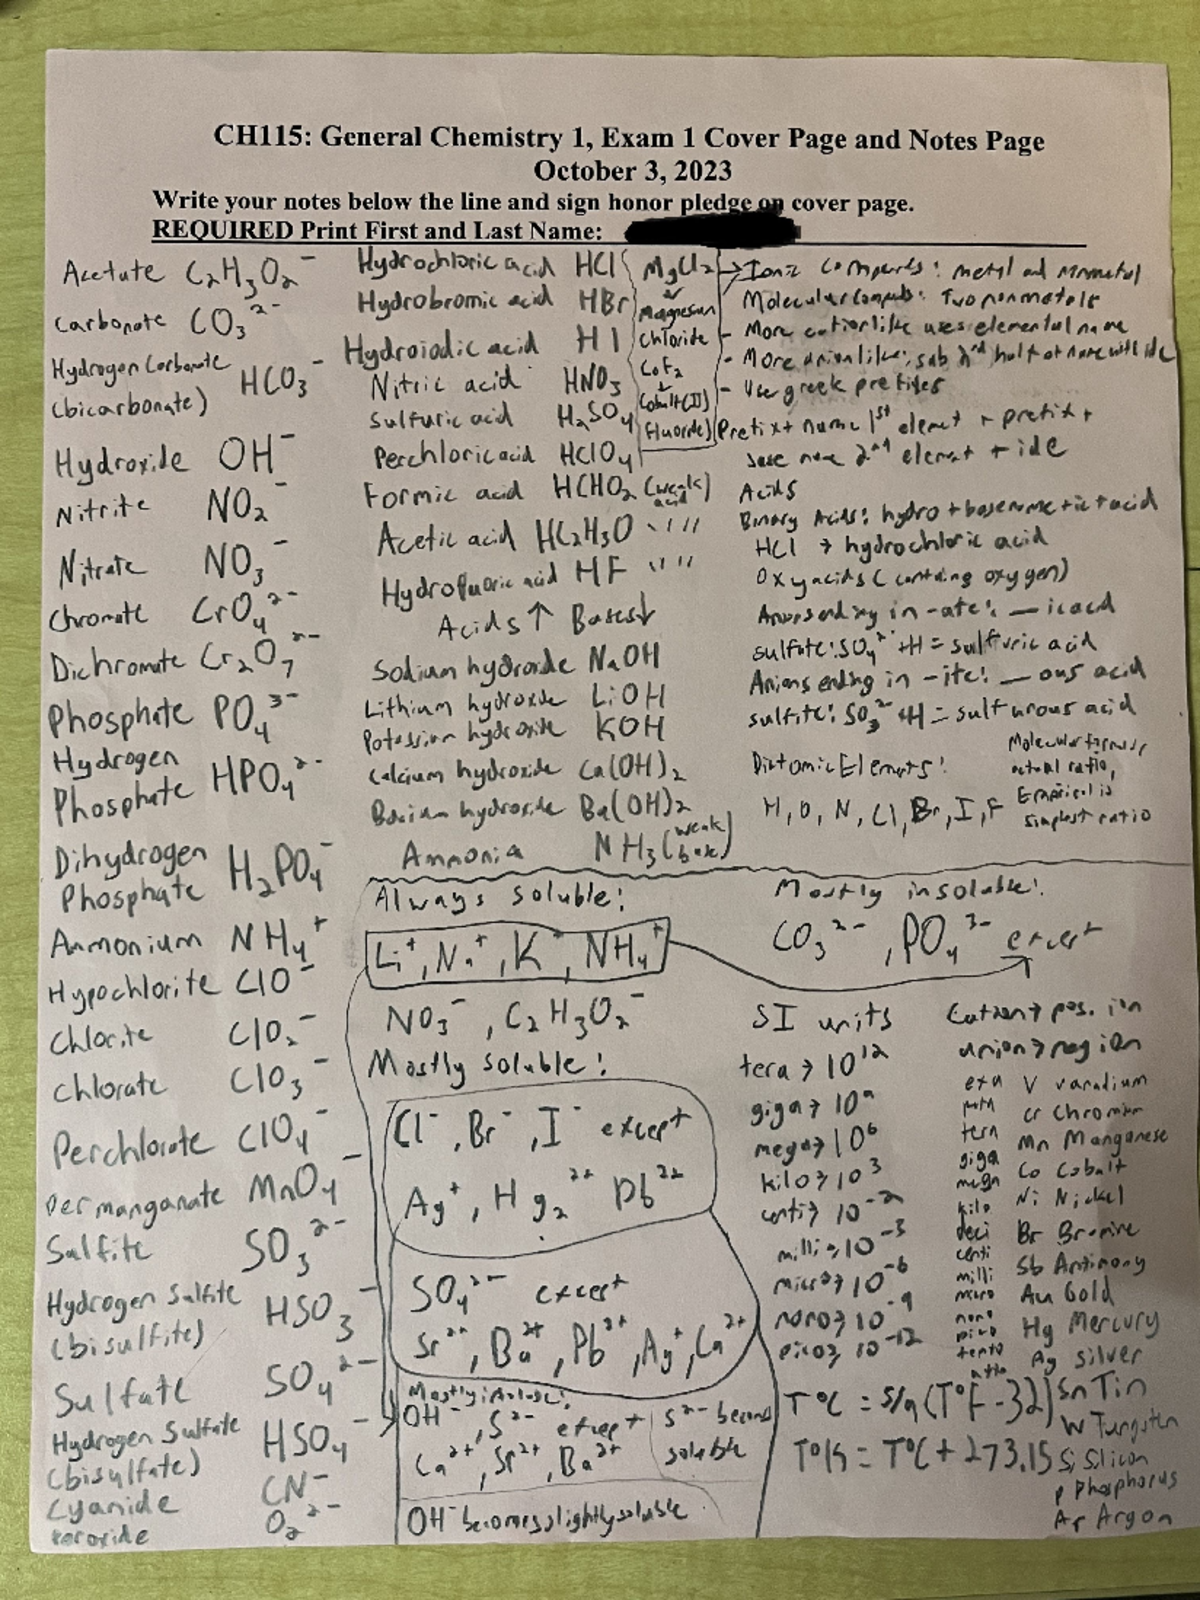 CH115: General Chemistry 1, Exam 1 Cover Page and Notes Page
October 3, 2023
Write your notes below the line and sign honor pledge on cover page.
REQUIRED Print First and Last Name:
Acetate C₂H₃O₂⁻
Carbonate CO₃²⁻
Hydrogen Carbonate
(bicarbonate) HCO₃⁻
Hydroxide OH⁻
Nitrite NO₂⁻
Nitrate NO₃⁻
Chromate CrO₄²⁻
Dichromate Cr₂O₇²⁻
Phosphate PO₄³⁻
Hydrogen
Phosphate HPO₄²⁻
Dihydrogen
Phosphate H₂PO₄⁻
Ammonium NH₄⁺
Hypochlorite ClO⁻
Chlorite ClO₂⁻
Chlorate ClO₃⁻
Perchlorate ClO₄⁻
Permanganate MnO₄⁻
Sulfite SO₃²⁻
Hydrogen Sulfite
(bisulfite) HSO₃⁻
Sulfate SO₄²⁻
Hydrogen Sulfate
(bisulfate) HSO₄⁻
Cyanide CN⁻
Peroxide O₂²⁻
Hydrochloric acid HCl
Hydrobromic acid HBr
Hydroiodic acid HI
Nitric acid HNO₃
Sulfuric acid H₂SO₄
Perchloric acid HClO₄
Formic acid HCHO₂ (weak acid)
Acetic acid HC₂H₃O " "
Hydrofluoric acid HF " "
Acids ↑ Bases ↓
Sodium hydroxide NaOH
Lithium hydroxide LiOH
Potassium hydroxide KOH
Calcium hydroxide Ca(OH)₂
Barium hydroxide Ba(OH)₂
Ammonia NH₃ (weak base)
MgCl₂
↓
Magnesium
Chloride
CoF₂
↓
Cobalt(II)
Fluoride
→ Ionic compounds: metal and nonmetal
Molecular Compounds: Two nonmetals
- More cation like uses elemental name
- More anion like: sub 2nd half of name with ide
- Use greek prefixes
Prefix + name 1st element + prefix +
base name 2nd element + ide
Acids
Binary Acids: hydro + base name + ic + acid
HCl → hydrochloric acid
Oxyacids (containing oxygen)
Anions ending in -ate: __ ic acid
sulfate: SO₄²⁻ + H = sulfuric acid
Anions ending in -ite: __ ous acid
sulfite: SO₃²⁻ + H = sulfurous acid
Diatomic Elements:
H, O, N, Cl, Br, I, F
Molecular formula,
actual ratio,
Empirical is
simplest ratio
Always soluble:
Li⁺, Na⁺, K⁺, NH₄⁺
NO₃⁻, C₂H₃O₂⁻
Mostly soluble:
Cl⁻, Br⁻, I⁻ except
Ag⁺, Hg₂²⁺ Pb²⁺
SO₄²⁻ except
Sr²⁺, Ba²⁺, Pb²⁺, Ag⁺, Ca²⁺
Mostly insoluble:
OH⁻, S²⁻ except
Ca²⁺, Sr²⁺, Ba²⁺
S²⁻ becomes
soluble
OH⁻ becomes slightly soluble
Mostly insoluble:
CO₃²⁻, PO₄³⁻ except
SI units
tera → 10¹²
giga → 10⁹
mega → 10⁶
kilo → 10³
centi → 10⁻²
milli → 10⁻³
micro → 10⁻⁶
nano → 10⁻⁹
pico → 10⁻¹²
Cation → pos. ion
anion → neg ion
exa
peta
tera
giga
mega
kilo
deci
centi
milli
micro
nano
pico
femto
atto
V vanadium
Cr Chromium
Mn Manganese
Co Cobalt
Ni Nickel
Br Bromine
Sb Antimony
Au Gold
Hg Mercury
Ag Silver
Sn Tin
W Tungsten
Si Silicon
P Phosphorus
Ar Argon
T°C = 5/9 (T°F - 32)
T°K = T°C + 273.15